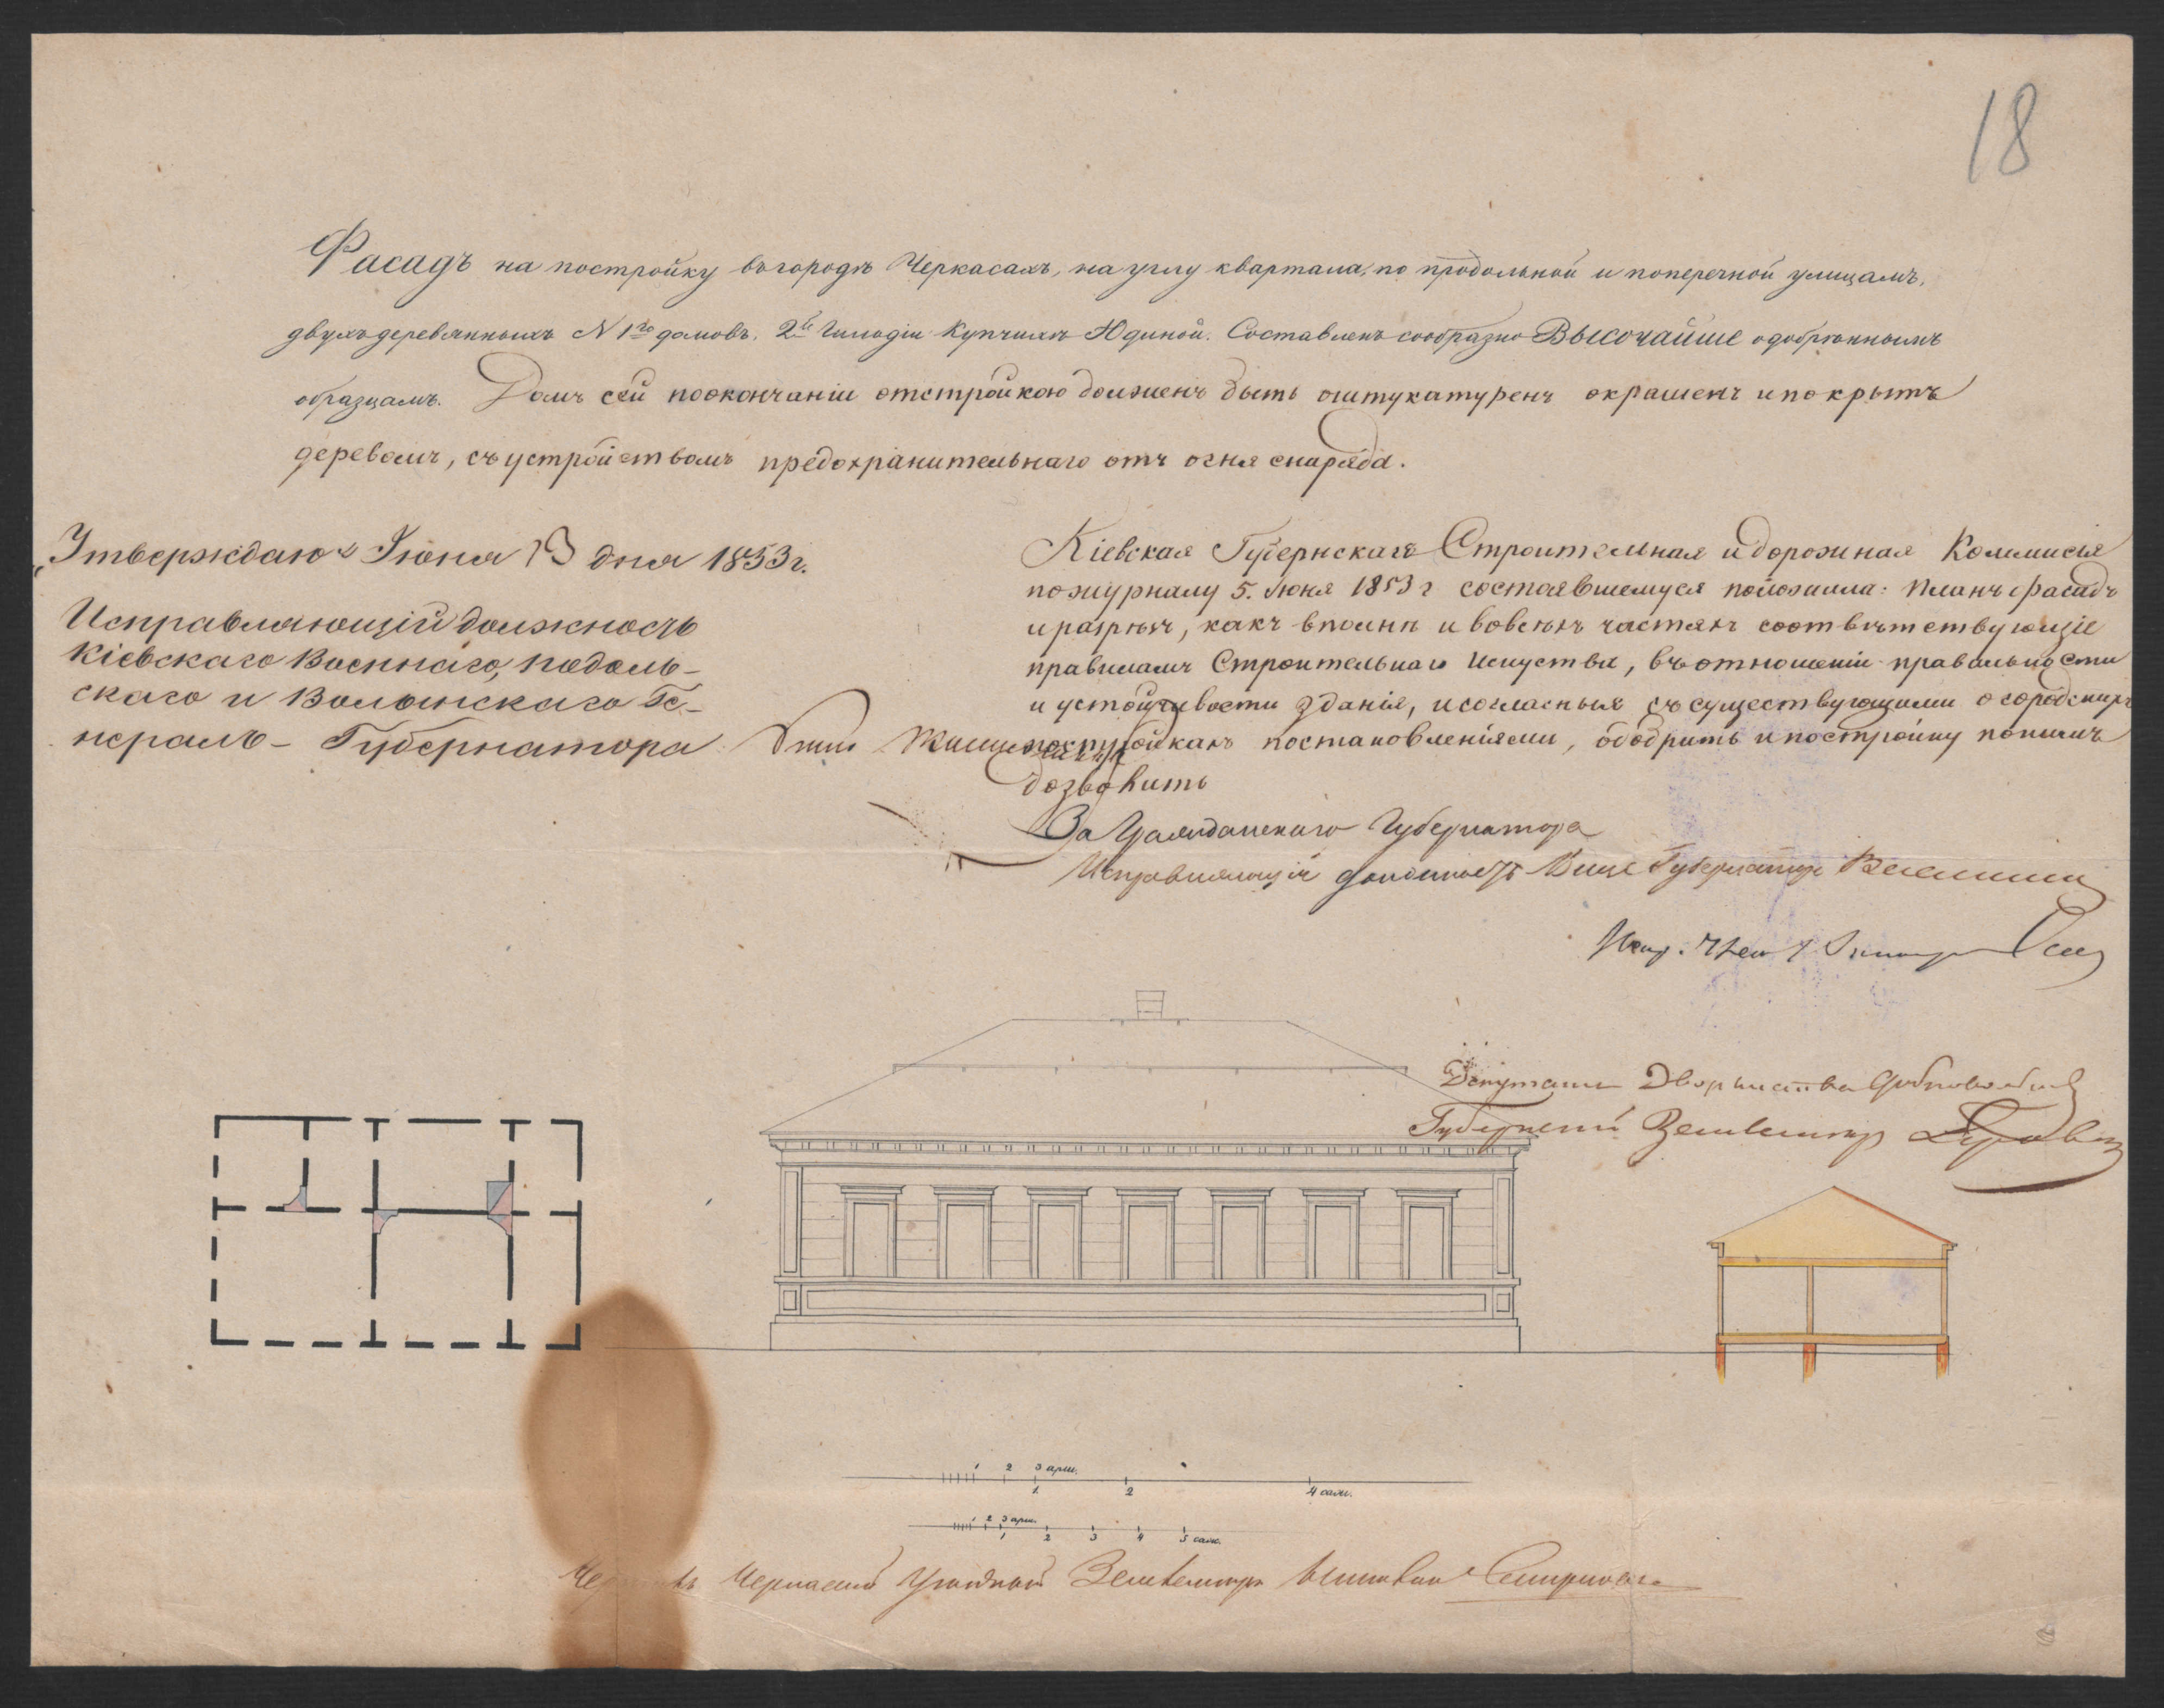 18
Фасадъ на постройку въ городѣ Черкасахъ, на углу квартала, по продольной и поперечной улицамъ,
двухъ деревянныхъ N 1го домовъ, 2й Гильдіи Купчихѣ Юдиной. Составленъ сообразно Высочайше одобреннымъ
образцамъ. Домъ сей по окончаніи отстройкою долженъ быть оштукатуренъ окрашенъ и покрытъ
деревомъ, съ устройствомъ предохранительнаго отъ огня снаряда.
„Утверждаю“ Іюня 13 дня 1853 г.
Исправляющій должность
Кіевскаго Военнаго, Подоль-
скаго и Волынскаго Ге-
нералъ-Губернатора
Кіевская Губернская Строительная и дорожная Коммисія
по журналу 5. Іюня 1853 г состоявшемуся положила: Планъ фасадъ
и разрѣзъ, какъ вполнѣ и во всѣхъ частяхъ соотвѣтствующіе
правиламъ Строительнаго Искуства, въ отношеніи правильности
и устойчивости зданія, и согласные съ существующими о городскихъ
постройкахъ постановленіями, ободрить и постройку по нимъ
дозволить
За Гражданскаго Губернатора
Исправляющій должность Вице Губернатора
Депутатъ Дворянства
Губернскій Землемеръ
1 2 3 арш.
1 2 4 саж.
1 2 3 арш.
1 2 3 4 5 саж.
Черкаский Уѣздный Землемеръ